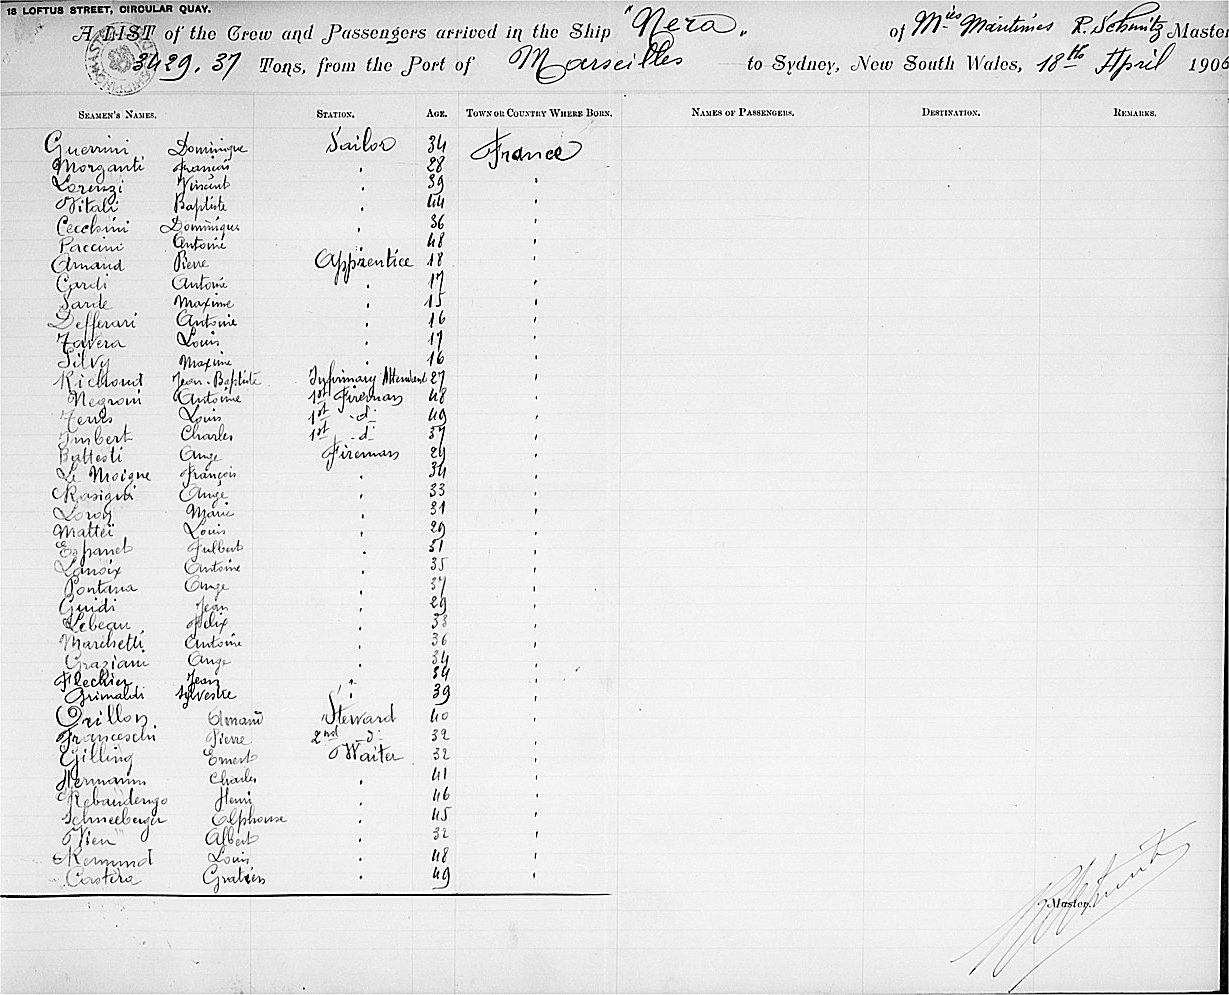 18 LOFTUS STREET, CIRCULAR QUAY.
A LIST of the Crew and Passengers arrived in the Ship "Nera" of Mies Maritimes R. Schmitz Master
3429.37 Tons, from the Port of Marseilles to Sydney, New South Wales, 18th April 1906
SEAMEN'S NAMES. STATION. AGE. TOWN OR COUNTRY WHERE BORN. NAMES OF PASSENGERS. DESTINATION. REMARKS.
Guerrini Dominique Sailor 34 France
Morganti François " 28 "
Lorenzi Vincent " 39 "
Vitali Baptiste " 44 "
Cecchini Dominique " 36 "
Paccini Antoine " 48 "
Arnaud Pierre Apprentice 18 "
Cardi Antoine " 17 "
Sarde Maxime " 15 "
Defferari Antoine " 16 "
Tavera Louis " 17 "
Silvy Maxime " 16 "
Richond Jean-Baptiste Infirmary Attendant 27 "
Negroni Antoine 1st Fireman 48 "
Ferris Louis 1st -d- 49 "
Imbert Charles 1st -d- 37 "
Battesti Ange Fireman 29 "
Le Moigne François " 34 "
Ange " 33 "
Leroy Marie " 31 "
Mattei Louis " 29 "
Espanet Fulbert " 31 "
Lanoix Antoine " 35 "
Pontana Ange " 37 "
Guidi Jean " 29 "
Lebeau Félix " 33 "
Marchetti Antoine " 36 "
Graziani Ange " 34 "
Flechier Jean " 34 "
Grimaldi Sylvestre " 39 "
Orillon Armand Steward 40 "
Franceschi Pierre 2nd -d- 32 "
Gilling Ernest Waiter 32 "
Hermann Charles " 41 "
Rebaudengo Henri " 46 "
Schneeberger Alphonse " 45 "
Vien Albert " 32 "
Remund Louis " 48 "
Castera Gratien " 49 "
Master.